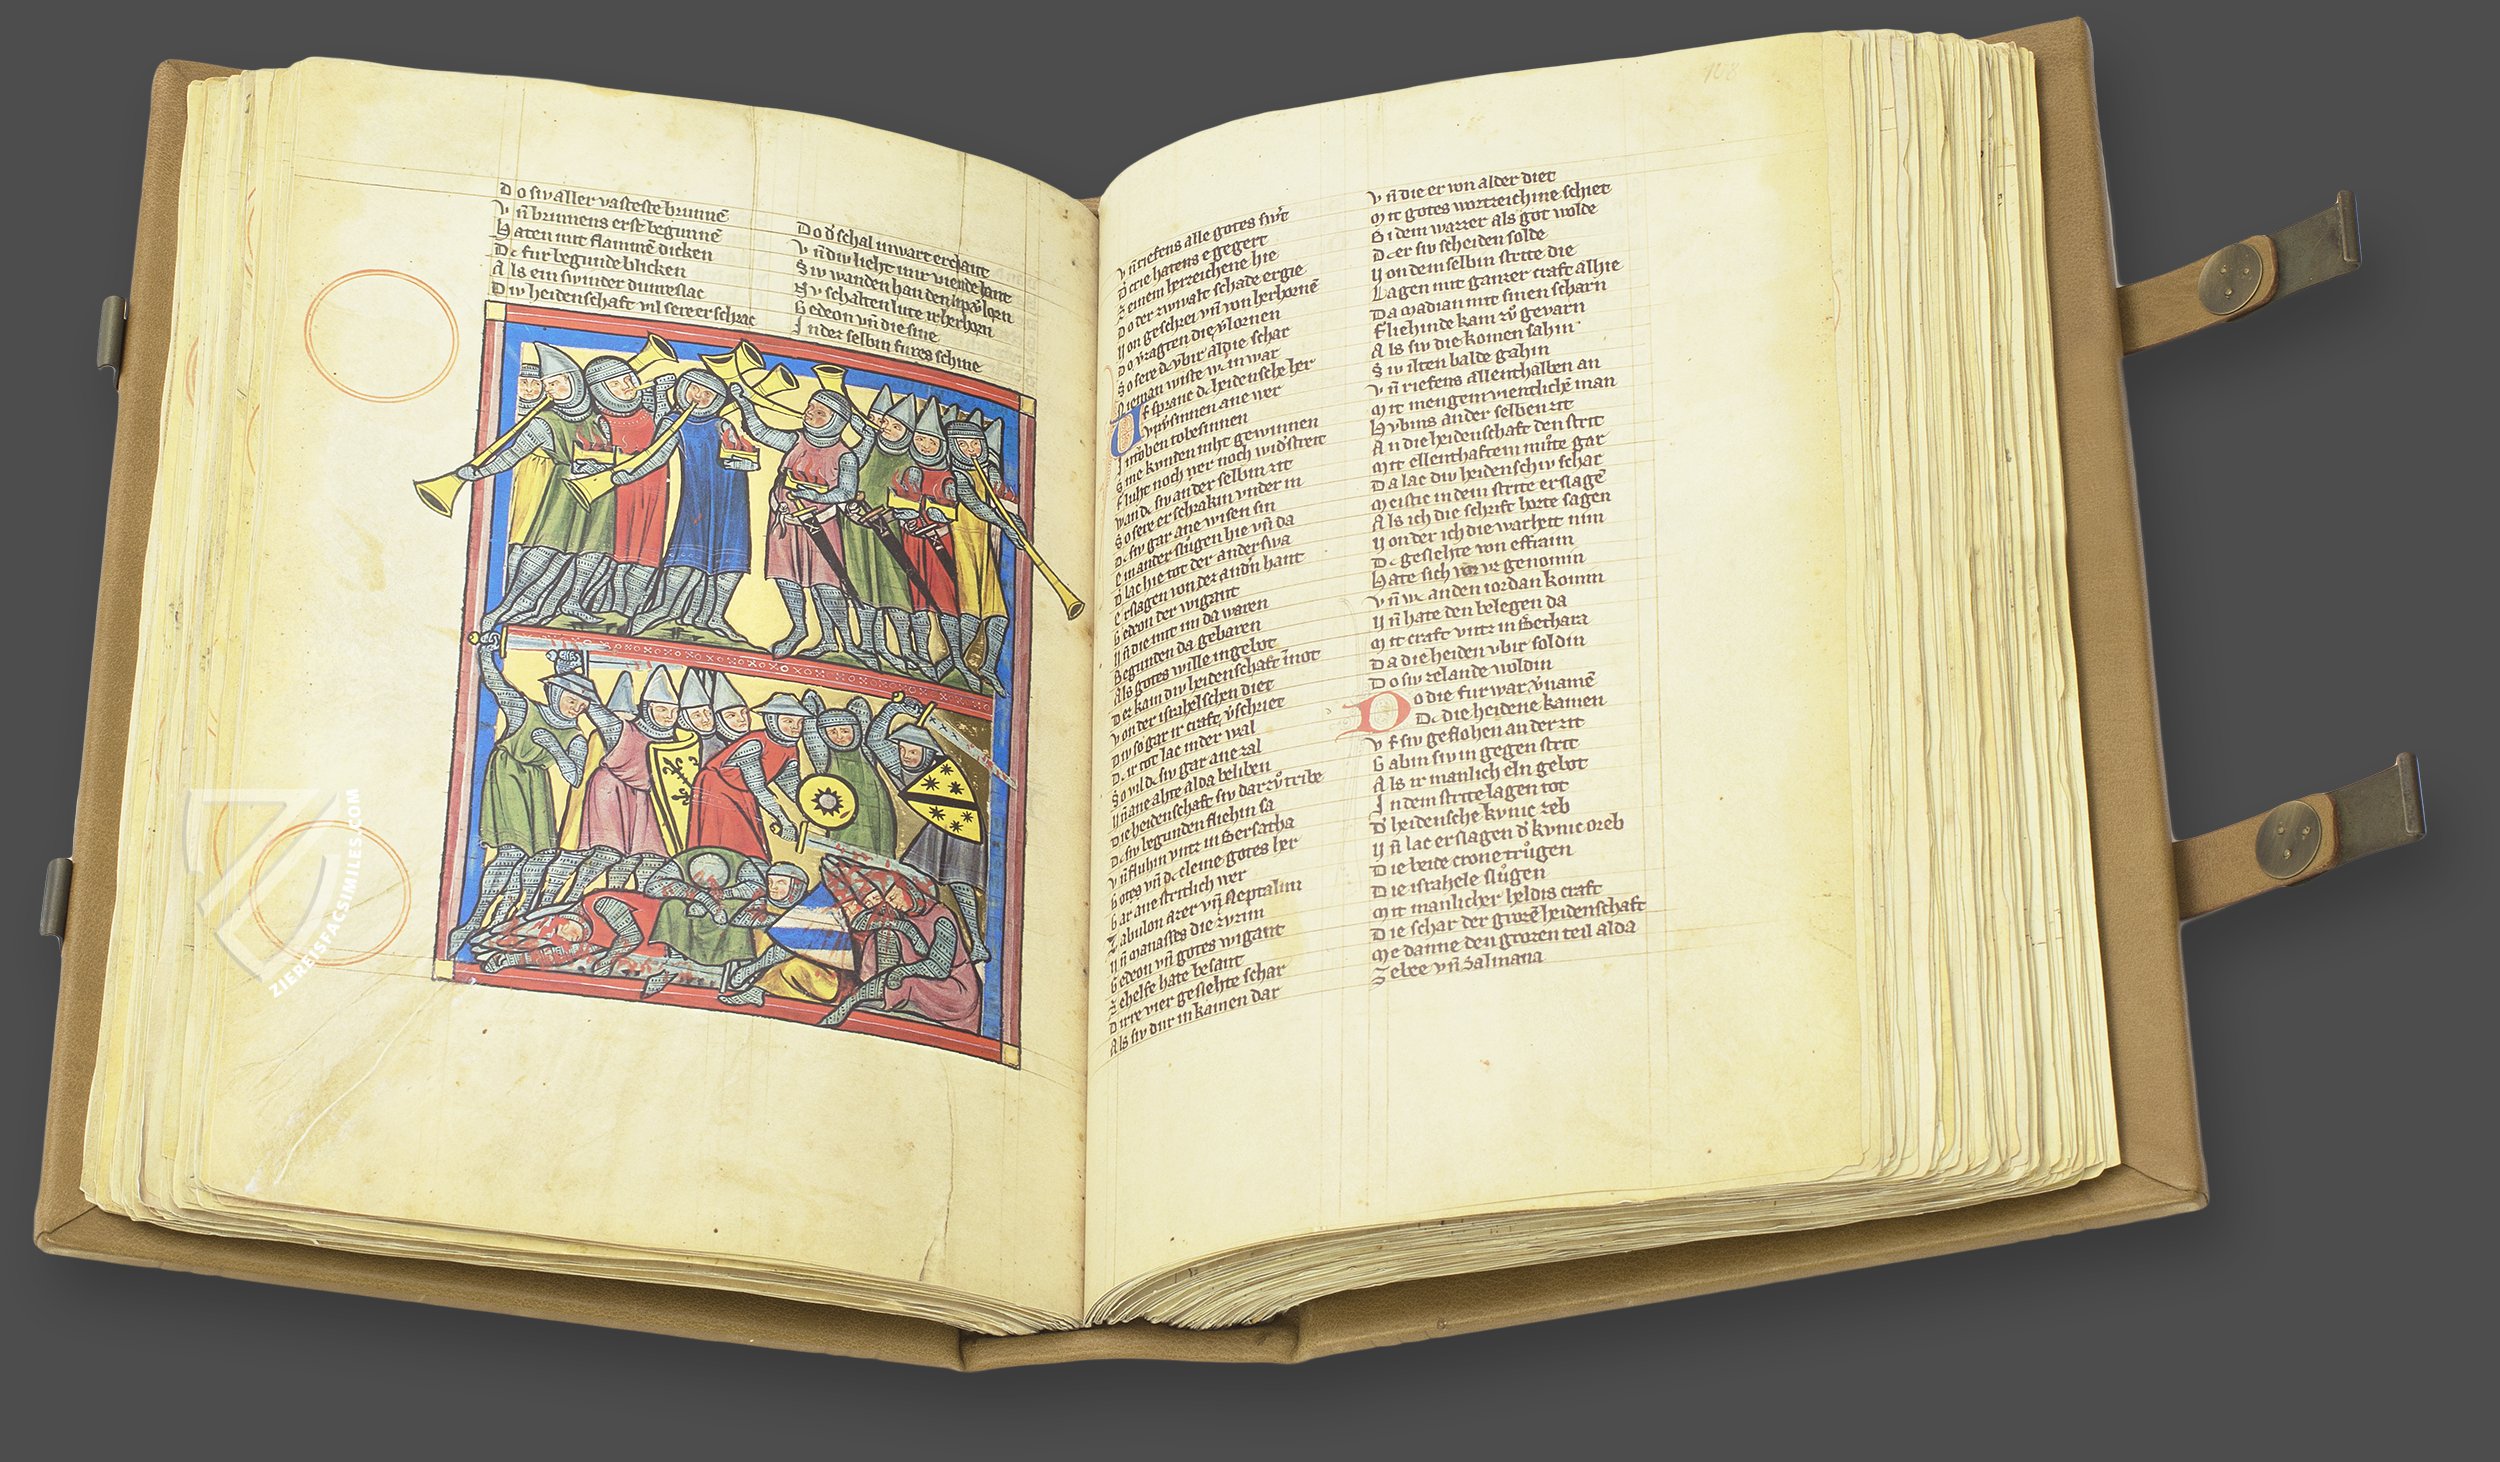 Do siv aller vasteste brunnē
Vn̄ brinnens erst begunnē
Haten mit flammē dicken
Dc fur begunde blicken
Als ein swinder dunreslac
Div heidenschaft vil sere erschrac
Do d' schal in wart erchant
Vn̄ div lieht inir viende hant
Siv wanden han den lip v'lorn
Nv schalten lute ir herhorn
Gedeon vn̄ die sine
In der selbin fures schine
108
Vn̄ riefens alle gotes swt
D' crie hatens e gegert
Zeinem herzeichene hie
Do der zwivalt schade ergie
Von geschrei vn̄ von herhornē
Do v'zagten die v'lornen
So sere dc vbir al die schar
Nieman wiste war
Vf spranc dc heidensche her
v'sinnen ane wer
In toben tobesinnen
Sine kvnden niht gewinnen
Fluht noch wer noch wid'streit
Wan dc siv an der selbin zit
So sere erschrakin vnder in
Dc siv gar ane wisen sin
Ein ander slugen hie vn̄ da
D' lac hie tot der anderswa
Erslagen von der andn̄ hant
Gedeon der wigant
Vn̄ die mit im da waren
Begunden da gebaren
Als gotes wille in gebot
Der kam div heidenschaft in not
Von der israhelschen diet
Div so gar ir craft v'schriet
Dc ir tot lac in der wal
So vil dc siv gar ane zal
Vn̄ ane ahte alda beliben
Die heidenschaft siv dar zv tribe
Dc siv begunden fliehin sa
Vn̄ fluhin vntz in Bersatha
Gotes vn̄ dc cleine gotes her
Gar ane stritlich wer
Zabulon Azer vn̄ Neptalim
Vn̄ Manasses die zvzim
Gedeon vn̄ gotes wigant
Zehelfe hate besant
Dirre vier geslehte schar
Als siv dur in kamen dar
Vn̄ die er von alder diet
Mit gotes wortzeichine schiet
Bi dem wazzer als got wolde
Dc er siv scheiden solde
Von dem selbin strite die
Lagen mit ganzer craft alhie
Da Madian mit sinen scharn
Fliehinde kam zv gevarn
Als siv die komen sahin
Siv ilten balde gahin
Vn̄ riefens allenthalben an
Mit mengem vientlichē man
Hvbins ander selben zit
An die heidenschaft den strit
Mit ellenthaftem mvte gar
Da lac div heidenschiv schar
Meistic in dem strite erslagē
Als ich die schrift horte sagen
Von der ich die warheit nim
Dc geslehte von effraim
Hate sich vor vz genomin
Vn̄ wc anden iordan komin
Vn̄ hate den belegen da
Mit craft vntz in Bethara
Da die heiden vbir soldin
Do siv zelande woldin
Do die fur war v'namē
Dc die heidene kamen
Vf siv geflohen an der zit
Gabin siv in gegen strit
Als ir manlich eln gebot
In dem strite lagen tot
D' heidensche kvnic zeb
Vn̄ lac erslagen d' kvnic oreb
Die beide crone trůgen
Die israhele slůgen
Mit manlicher heldis craft
Die schar der grozē heidenschaft
Me danne den grozen teil alda
Zebee vn̄ Salmana
ZIEREISFACSIMILES.COM